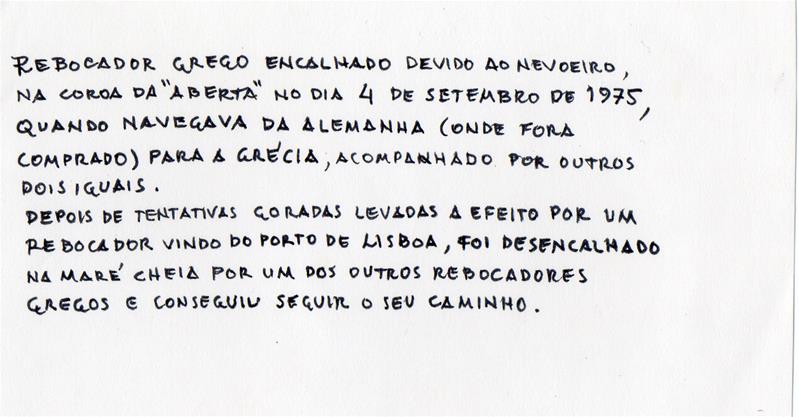 REBOCADOR GREGO ENCALHADO DEVIDO AO NEVOEIRO,
NA COROA DA "ABERTA" NO DIA 4 DE SETEMBRO DE 1975,
QUANDO NAVEGAVA DA ALEMANHA (ONDE FORA
COMPRADO) PARA A GRÉCIA, ACOMPANHADO POR OUTROS
DOIS IGUAIS.
DEPOIS DE TENTATIVAS GORADAS LEVADAS A EFEITO POR UM
REBOCADOR VINDO DO PORTO DE LISBOA, FOI DESENCALHADO
NA MARÉ CHEIA POR UM DOS OUTROS REBOCADORES
GREGOS E CONSEGUIU SEGUIR O SEU CAMINHO.